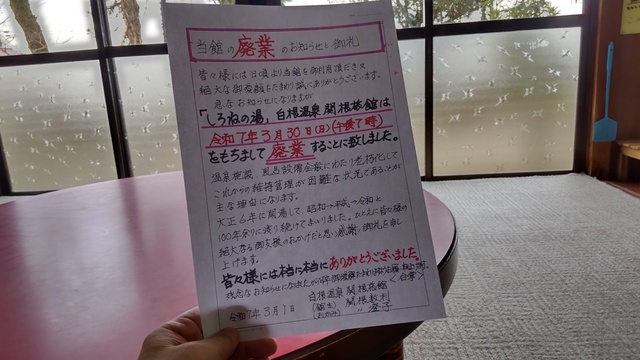 当館の廃業のお知らせと御礼
皆々様には日頃より当館を御利用頂き又
絶大な御愛顧をたまわり誠にありがとうございます。
急なお知らせになりますが
「しろねの湯」白根温泉 関根旅館は
令和7年3月30日(日)(午後7時)
をもちまして廃業することに致しました。
温泉施設、風呂設備全般にわたり老朽化して
これからの維持管理が困難な状況であることが
主な理由になります。
大正6年に開湯して、昭和→平成→令和と
100年余りに渡り続けてまいりました。ひとえに皆々様の
絶大なる御支援のおかげだと思い感謝、御礼を申し
上げます。
皆々様には本当に本当にありがとうございました。
残念なお知らせになりましたが
令和7年3月1日
白根温泉 関根旅館
(館主) 関根敏利
(おかみ) 〃 澄子